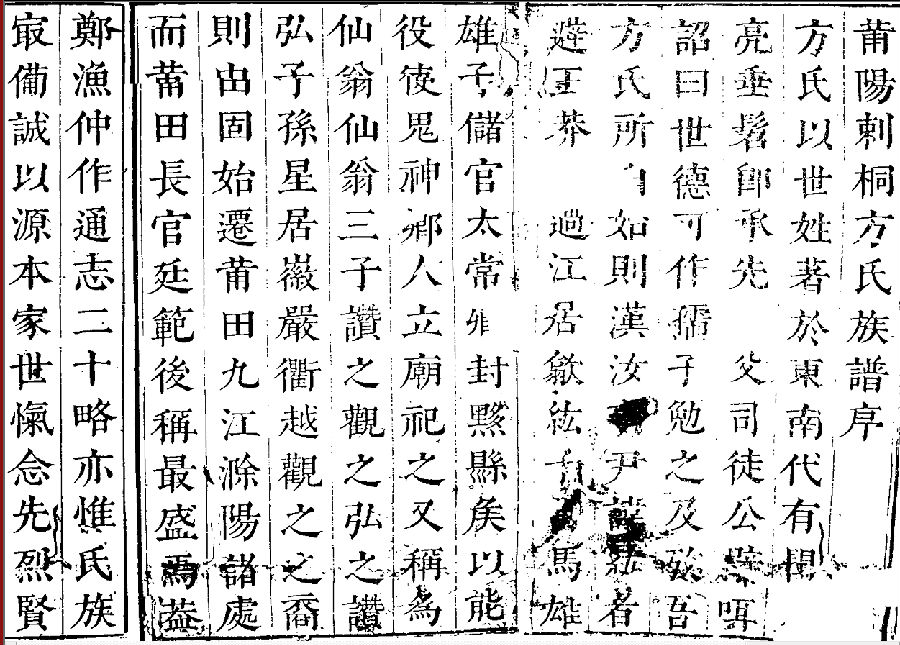 莆陽刺桐方氏族譜序
方氏以世姓著於東南代有聞
亮垂髫即承先父司徒公
詔曰世德可作孺子勉之及效吾
方氏所自如則漢汝尹者
避王莽過江居歙紘子馬雄
雄子儲官太常卿封黟縣矦以能
役使鬼神鄉人立廟祀之又稱為
仙翁仙翁三子讚之觀之弘之讚
弘子孫星居嶶嚴衢越觀之之裔
則出固始遷莆田九江滁陽諸處
而莆田長官廷範後稱最盛焉葢
鄭漁仲作通志二十略亦惟氏族
㝡備誠以源本家世愾念先烈賢